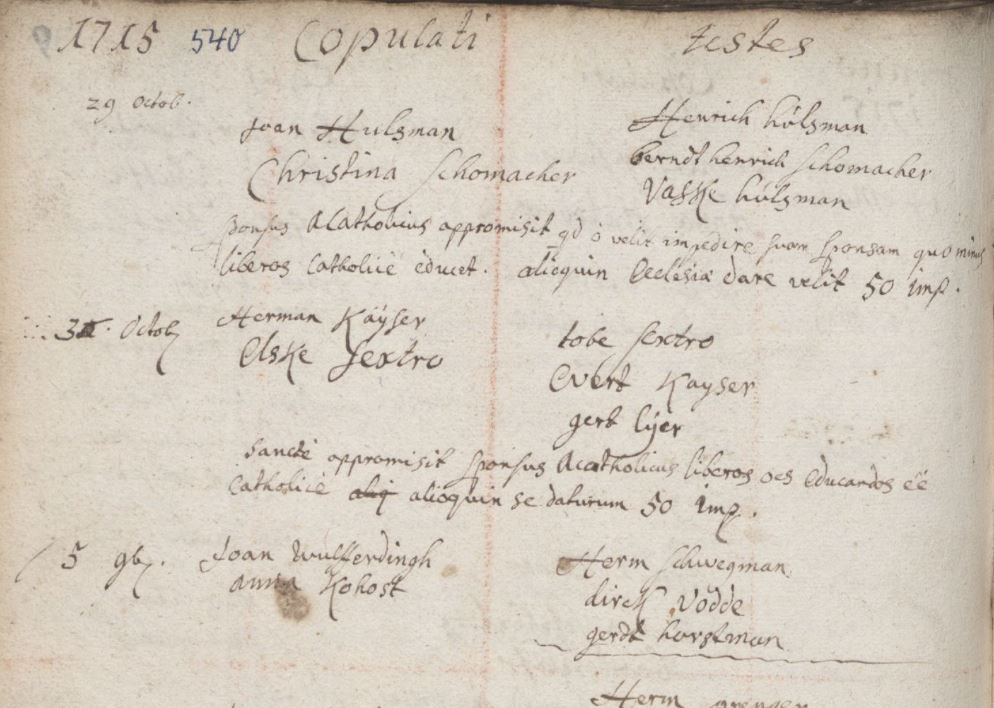 1715 540 Copulati testes
29 Octob.
Joan Hulsman Henrich hülsman
Christina Schomacher berndt henrich schomacher
Vaske hülsman
sponsus Acatholicus appromisit qd ō velit impedire suam sponsam quo minus
liberos Catholicè educet. alioquin Ecclesiæ dare velit 50 imp.
Octob Herman Kaÿser tobe sextro
Elske sextro Evert Kayser
gert
sanctè appromisit sponsus Acatholicus liberos oēs educandos eē
Catholicè aliq alioquin se daturum 50 imp.
5 9b. Joan Wulfferdingh Herm schwegman
anna Kohost dirck Vodde
gerdt horstman
Herm